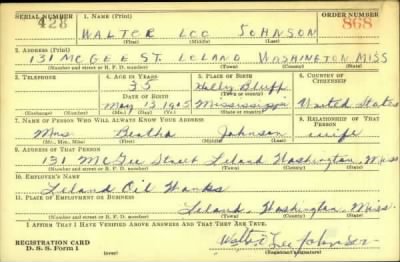 SERIAL NUMBER 1. NAME (Print) ORDER NUMBER
428 WALTER LEE JOHNSON 868
(First) (Middle) (Last)
2. ADDRESS (Print)
131 MCGEE ST. LELAND WASHINGTON MISS
(Number and street or R. F. D. number) (Town) (County) (State)
3. TELEPHONE 4. AGE IN YEARS 5. PLACE OF BIRTH 6. COUNTRY OF CITIZENSHIP
35 Holly Bluff
DATE OF BIRTH (Town or county)
May 13 1905 Mississippi United States
(Exchange) (Number) (Mo.) (Day) (Yr.) (State or country)
7. NAME OF PERSON WHO WILL ALWAYS KNOW YOUR ADDRESS 8. RELATIONSHIP OF THAT PERSON
Mrs Beatha Johnson wife
(Mr., Mrs., Miss) (First) (Middle) (Last)
9. ADDRESS OF THAT PERSON
131 McGee Street Leland Washington, Miss
(Number and street or R. F. D. number) (Town) (County) (State)
10. EMPLOYER'S NAME
Leland Oil Works
11. PLACE OF EMPLOYMENT OR BUSINESS
Leland, Washington, Miss.
(Number and street or R. F. D. number) (Town) (County) (State)
I AFFIRM THAT I HAVE VERIFIED ABOVE ANSWERS AND THAT THEY ARE TRUE.
REGISTRATION CARD Walter Lee Johnson
D. S. S. Form 1 (over) (Registrant's signature)